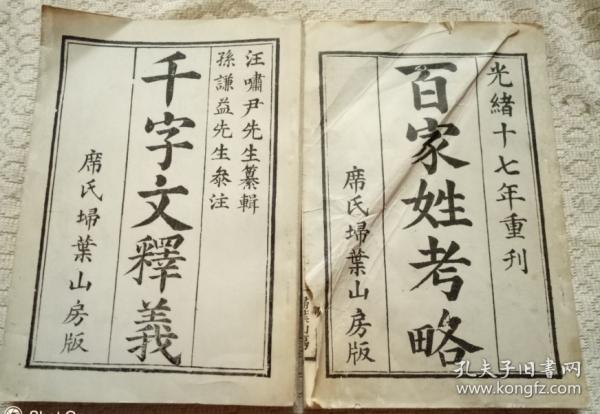 光緒十七年重刊
百家姓考略
席氏埽葉山房版
汪嘯尹先生纂輯
孫謙益先生叅注
千字文釋義
席氏埽葉山房版
孔夫子旧书网
www.kongfz.com